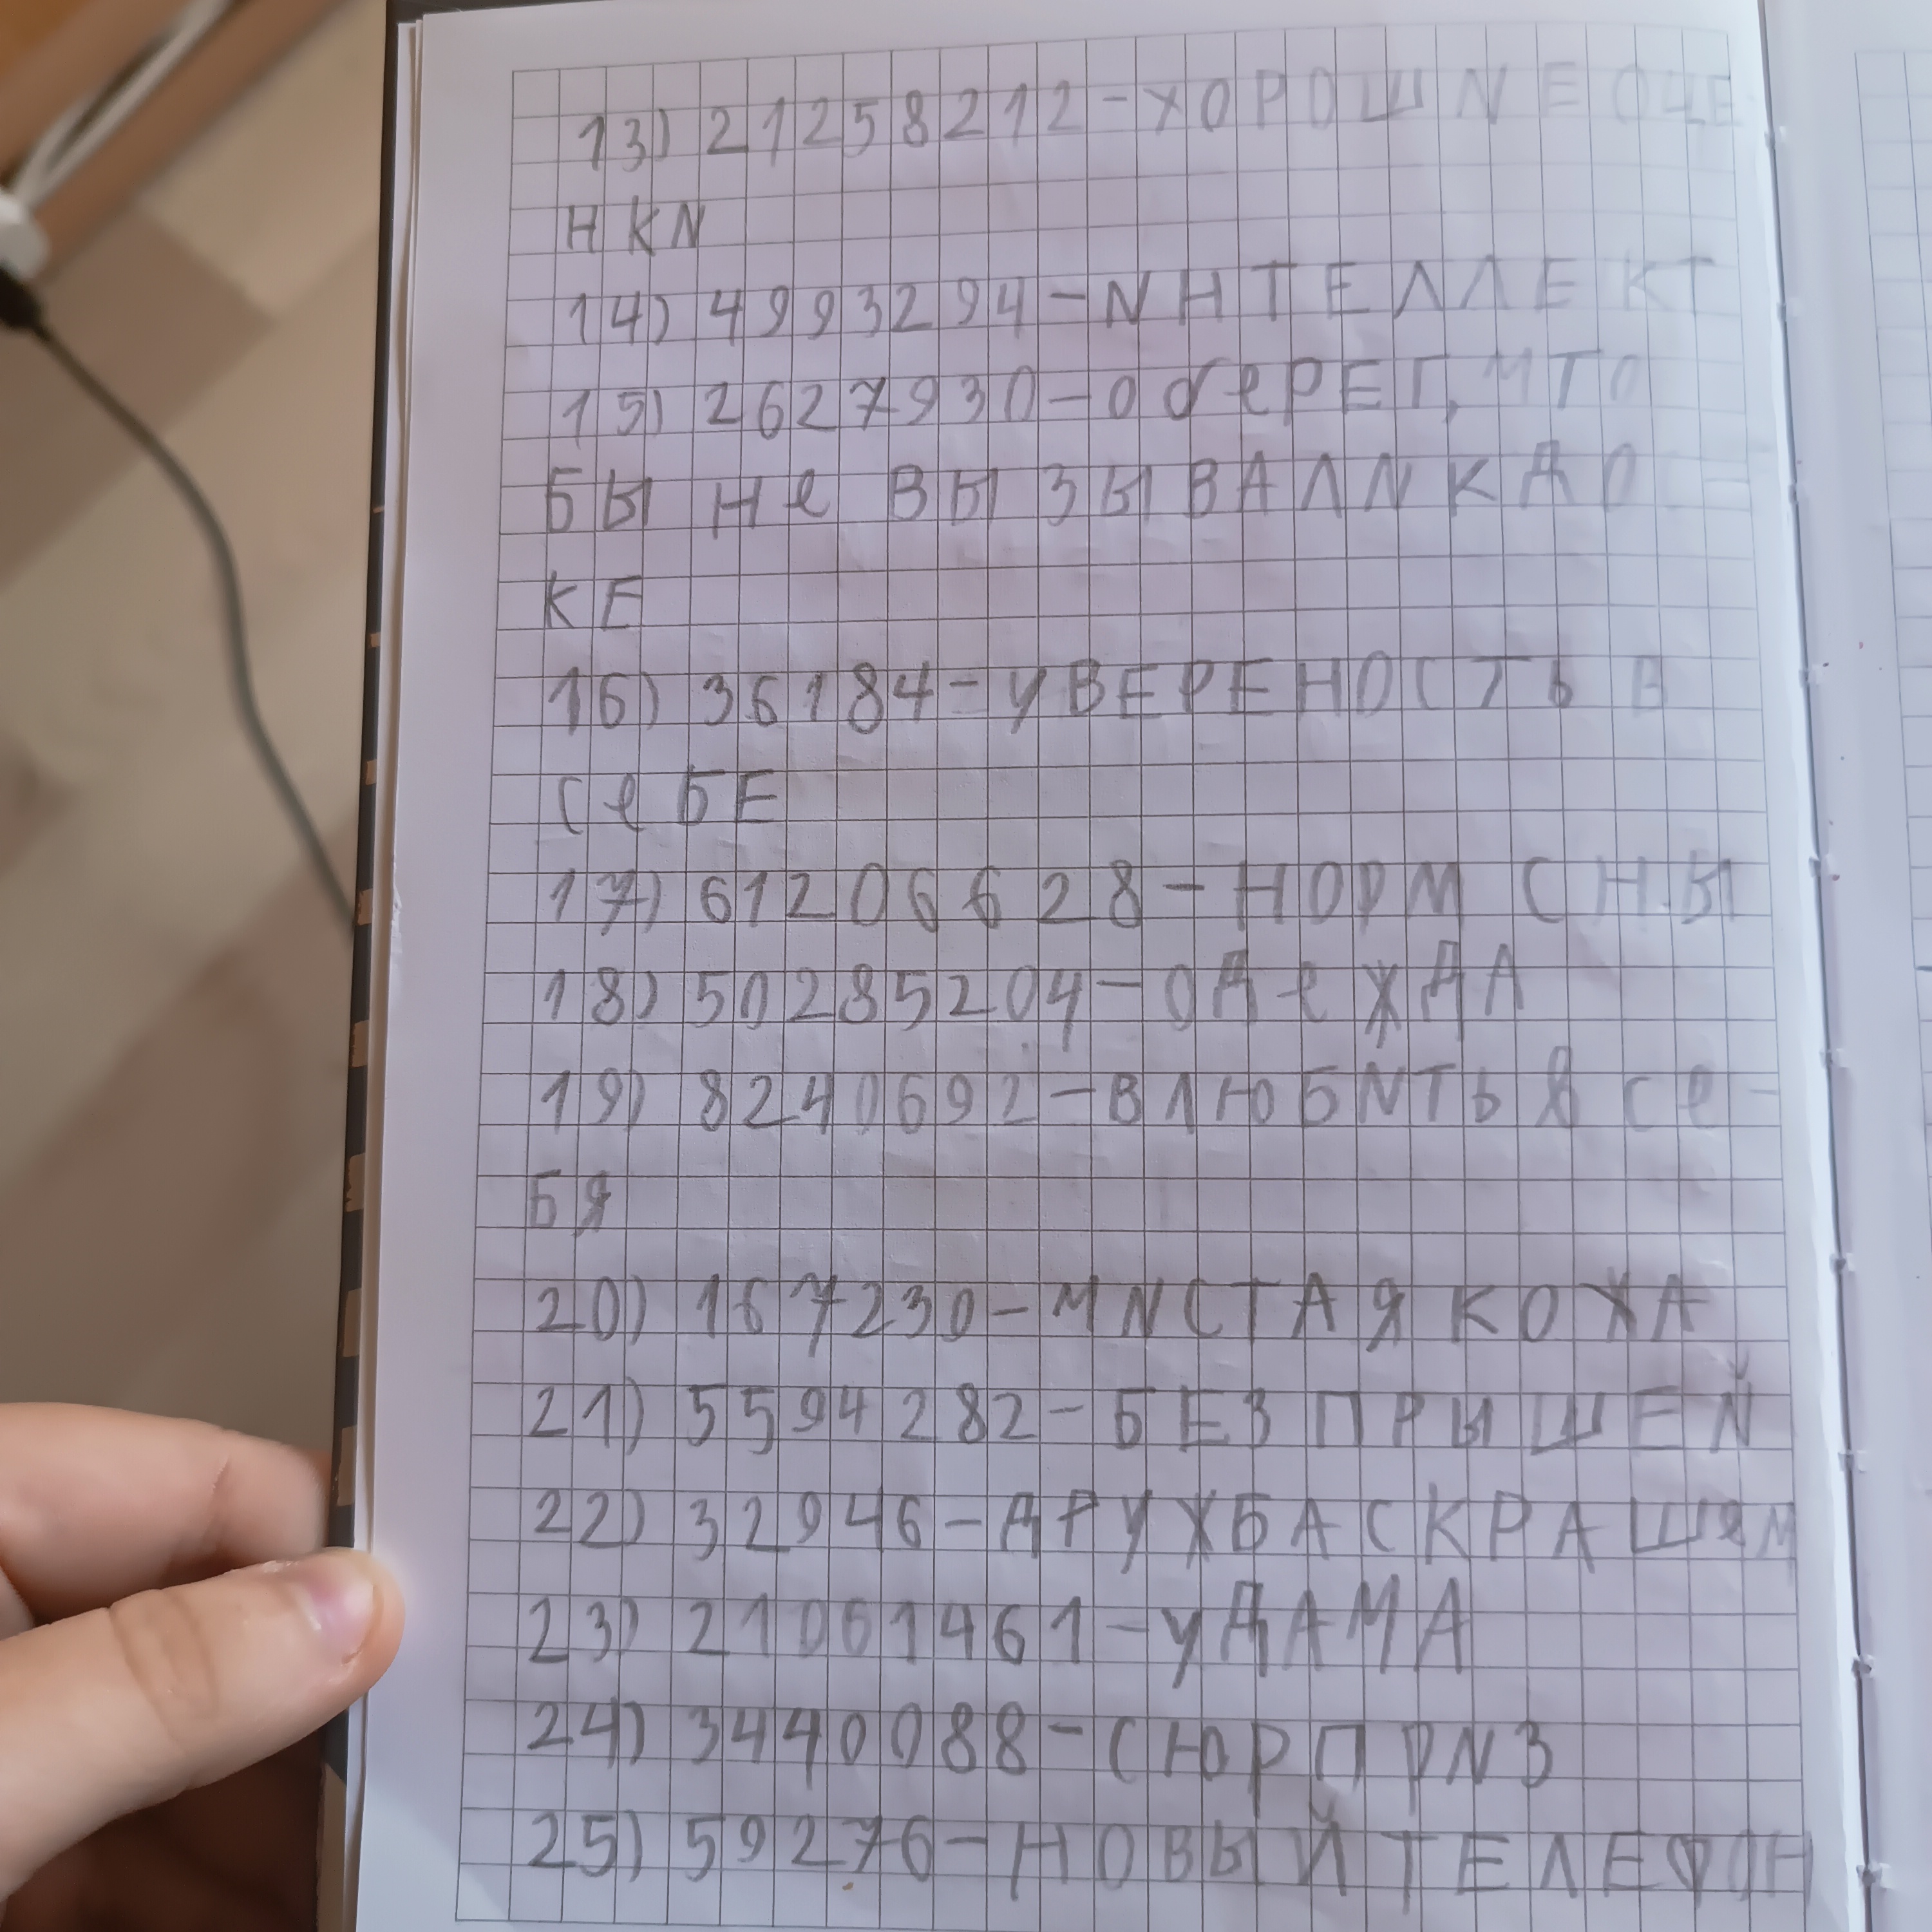 13) 21258212-ХОРОШИЕ ОЦЕ
НКИ
14) 4993294-ИНТЕЛЛЕКТ
15) 2627930-оберЕГ, ЧТО
БЫ Не ВЫЗЫВАЛИ К ДОС-
КЕ
16) 36184-УВЕРЕНОСТЬ В
СеБЕ
17) 61206628-НОРМ СНЫ
18) 50285204-ОДеЖДА
19) 8240692-ВЛЮБИТЬ В Се-
БЯ
20) 167230-ЧИСТАЯ КОЖА
21) 5594282-БЕЗ ПРЫШЕЙ
22) 32946-ДРУЖБА С КРАШЕМ
23) 21061461-УДАМА
24) 3440088-СЮРПРИЗ
25) 59276-НОВЫЙ ТЕЛЕФОН